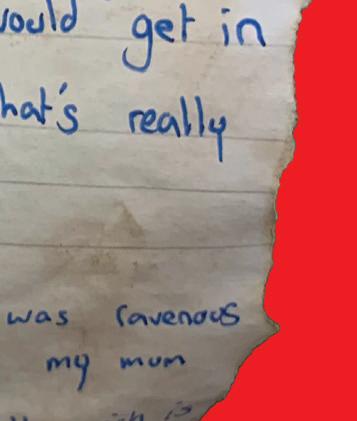 would get in
hat's really
was ravenous
my mum
is